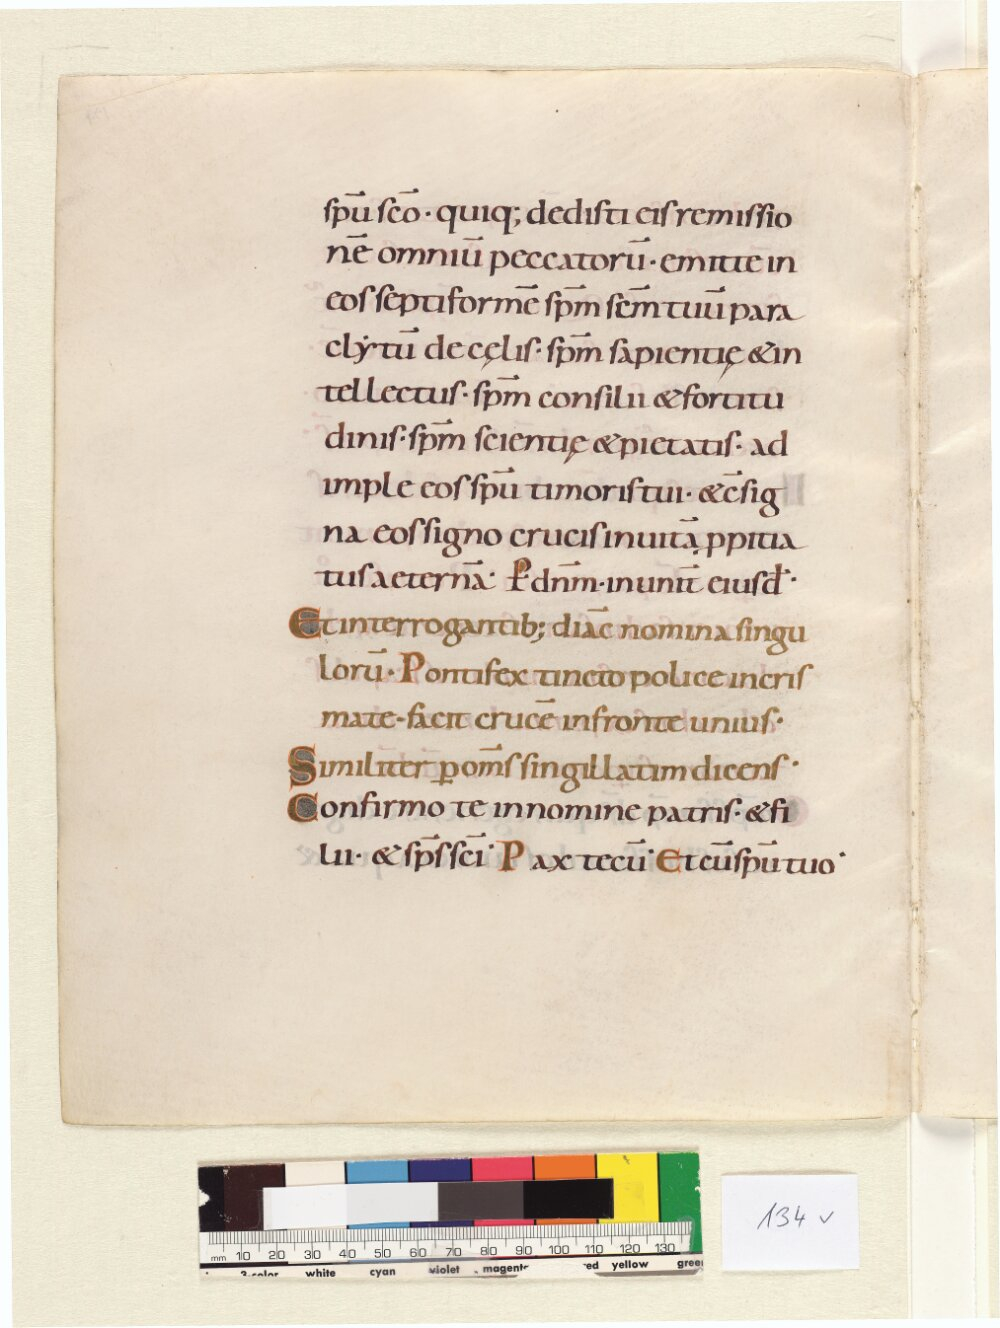 spū scō· quiq; dedisti eis remissio
nē omniū peccatorū· emitte in
eos septiformē sp̄m sc̄m tuū para
clẏtū de cęlis· sp̄m sapientię & in
tellectus· sp̄m consilii & fortitu
dinis· sp̄m scientię & pietatis· ad
imple eos spū timoris tui· & c̄sig
na eos signo crucis in uitā ꝓpitia
tus aeternā· P· dn̄m· in unit̄ eiusd̄·
Et interrogantib; diāc nomina singu
lorū· Pontifex tincto police in cris
mate· facit crucē in fronte unius·
Similit̄er ꝑ om̄s singillatim dicens·
Confirmo te in nomine patris· & fi
lii· & sp̄s sc̄i· Pax tecū· Et cū spū tuo·
134 v
mm 10 20 30 40 50 60 70 80 90 100 110 120 130
3-color white cyan violet magenta red yellow green